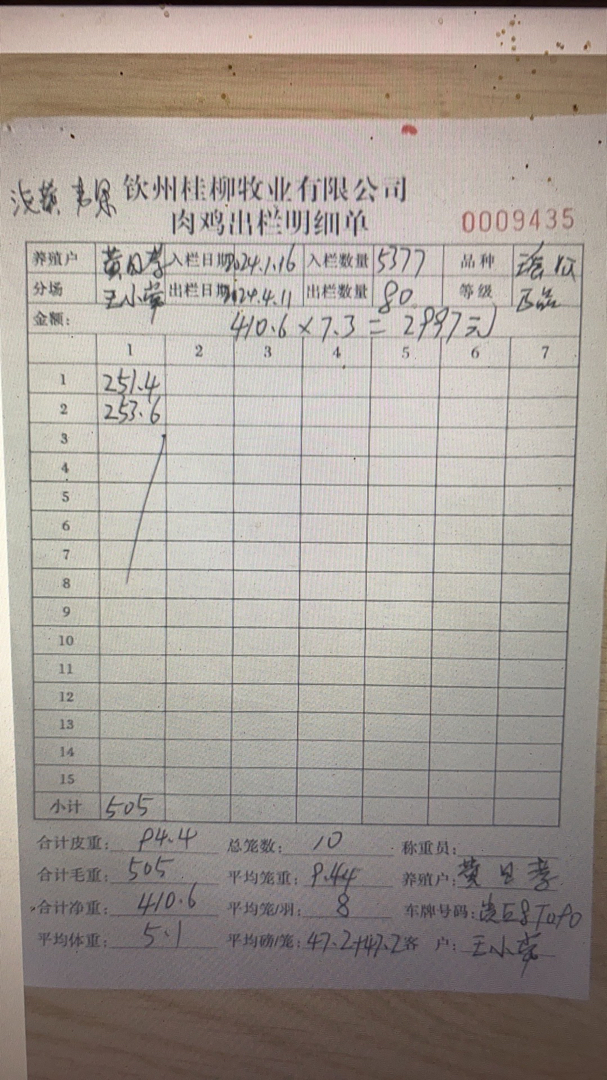 钦州桂柳牧业有限公司
肉鸡出栏明细单 0009435
养殖户 黄日孝 入栏日期 2024.1.16 入栏数量 5377 品种
分场 王小常 出栏日期 2024.4.11 出栏数量 80 等级 正品
金额: 410.6×7.3=2997元
1 2 3 4 5 6 7
1 251.4
2 253.6
3
4
5
6
7
8
9
10
11
12
13
14
15
小计 505
合计皮重: 94.4 总笼数: 10 称重员:
合计毛重: 505 平均笼重: 9.44 养殖户: 黄日孝
合计净重: 410.6 平均笼/羽: 8 车牌号码:
平均体重: 5.1 平均磅/笼: 47.2+47.2 客 户: 王小常